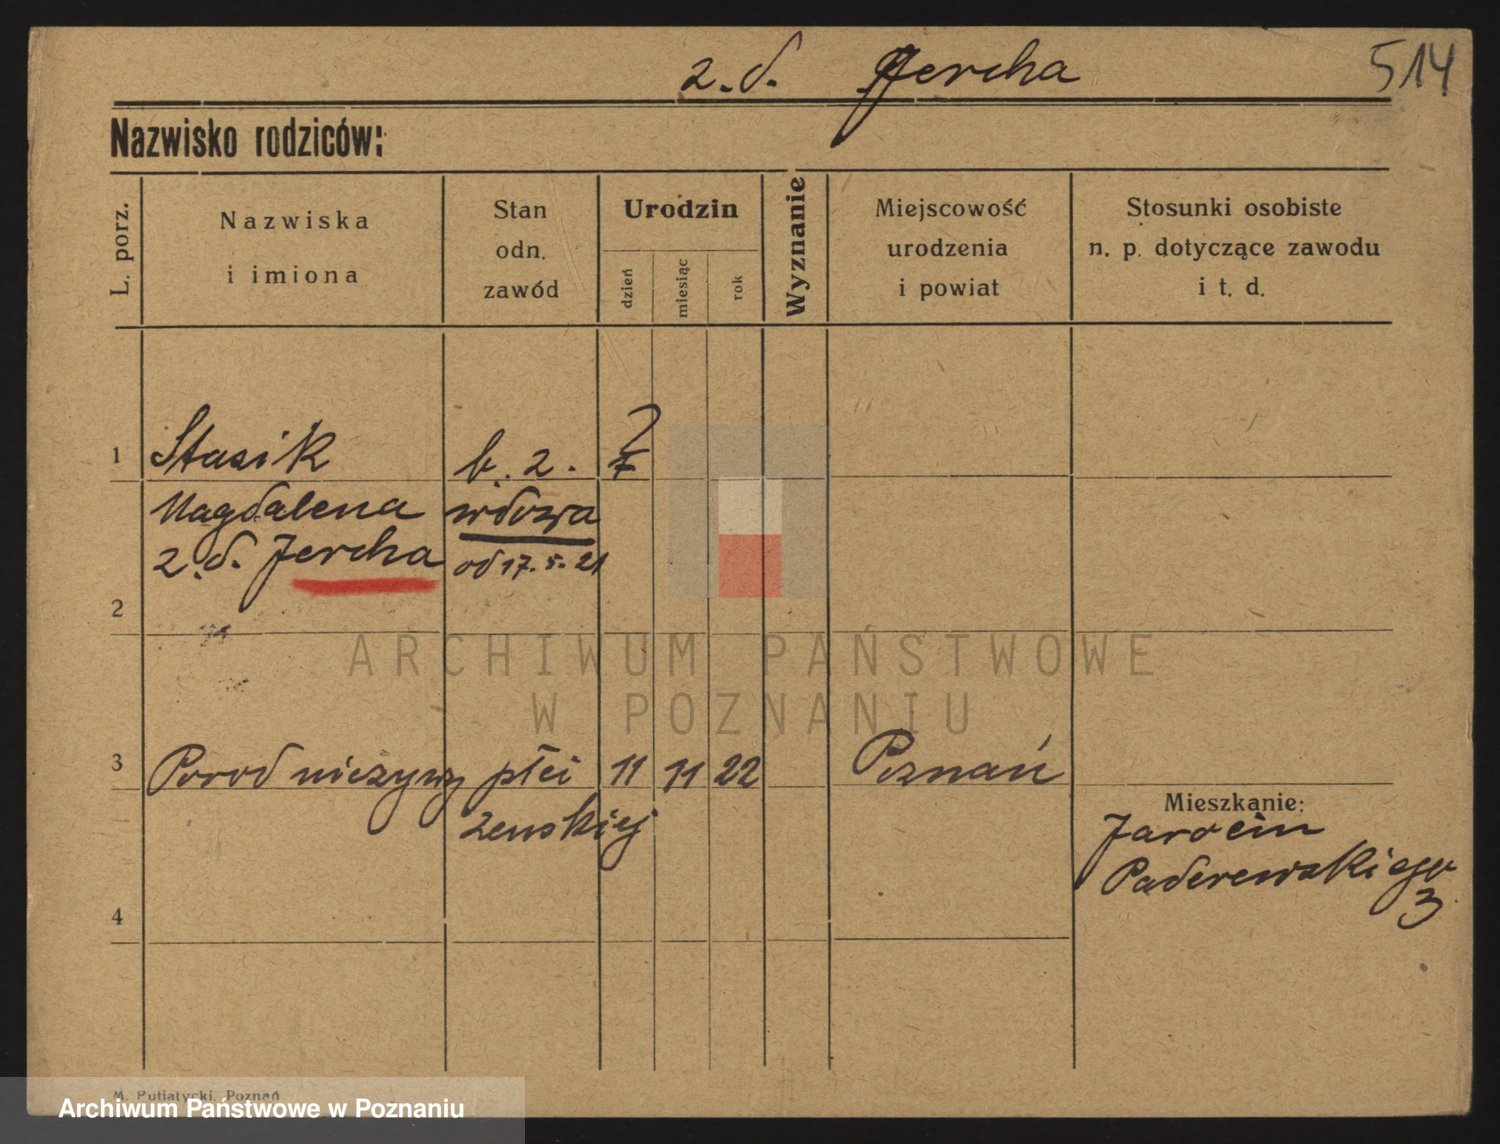 z. d. Jercha 514
Nazwisko rodziców:
L. porz.
Nazwiska
i imiona
Stan
odn.
zawód
Urodzin
dzień
miesiąc
rok
Wyznanie
Miejscowość
urodzenia
i powiat
Stosunki osobiste
n. p. dotyczące zawodu
i t. d.
1 Stasik b. z. ?
Magdalena wdowa
z. d. Jercha od 17. 5. 21
2
ARCHIWUM PAŃSTWOWE
W POZNANIU
3 Porod niezywy płci 11 11 22 Poznań
zenskiej
Mieszkanie:
Jarocin
Paderewskiego
3
4
M. Putiatycki, Poznań
Archiwum Państwowe w Poznaniu